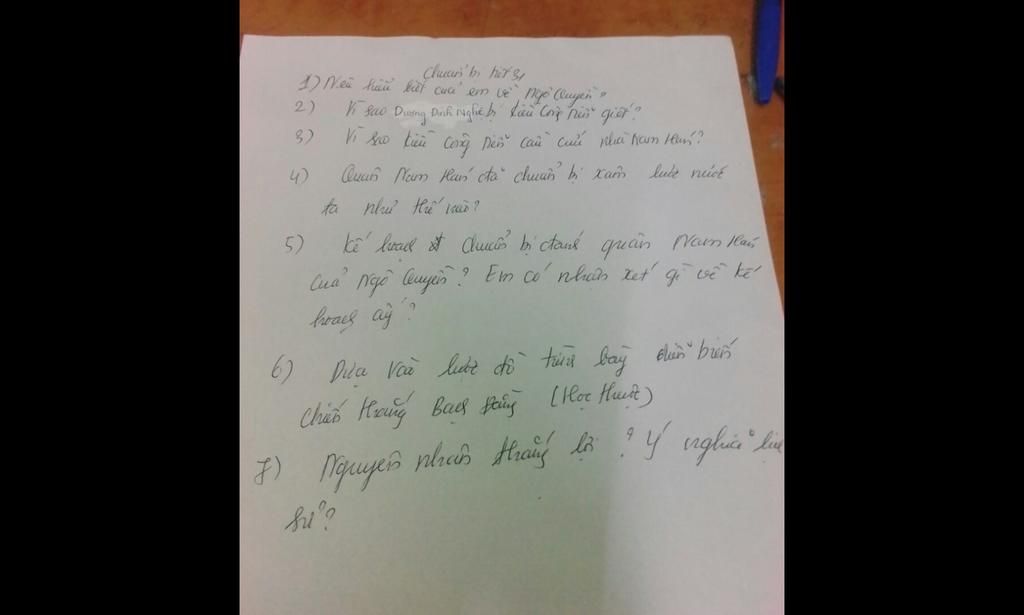 Chuẩn bị tiết 31
1) Nêu hiểu biết của em về Ngô Quyền?
2) Vì sao Dương Đình Nghệ bị Kiều Công Tiễn giết?
3) Vì sao Kiều Công Tiễn cầu cứu nhà Nam Hán?
4) Quân Nam Hán đã chuẩn bị xâm lược nước
ta như thế nào?
5) Kế hoạch chuẩn bị đánh quân Nam Hán
của Ngô Quyền? Em có nhận xét gì về kế
hoạch ấy?
6) Dựa vào lược đồ trình bày diễn biến
chiến thắng Bạch Đằng (Học thuộc)
7) Nguyên nhân thắng lợi? Ý nghĩa lịch
sử?